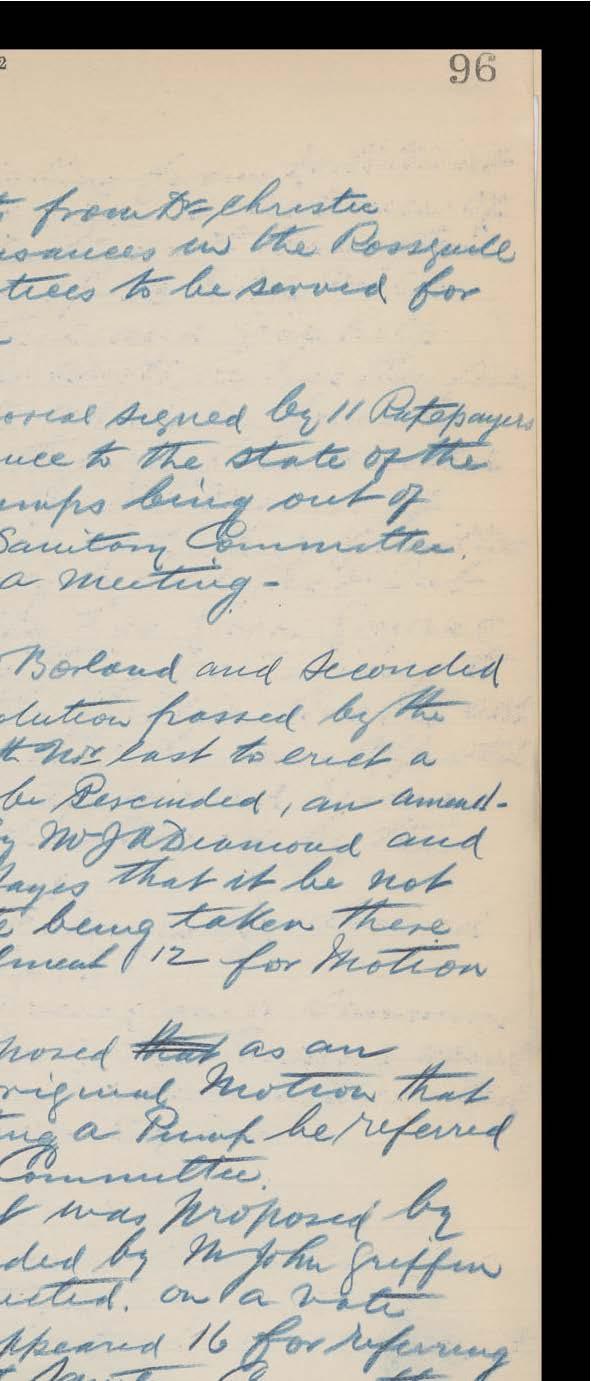 2
96
from Dr= Christie
isances in the Rossguill
tices to be served for
orial signed by 11 Ratepayers
nce to the state of the
umps being out of
Sanitary Committee.
a meeting -
Borland and seconded
olution passed by the
th Nov last to erect a
be Rescinded, an amend-
y Mr J A Diamond and
Hayes that it be not
e being taken there
dment 12 for Motion
posed that as an
riginal Motion that
ting a Pump be referred
Committee.
t was proposed by
ded by Mr John Griffin
ucted. on a vote
ppeared 16 for referring